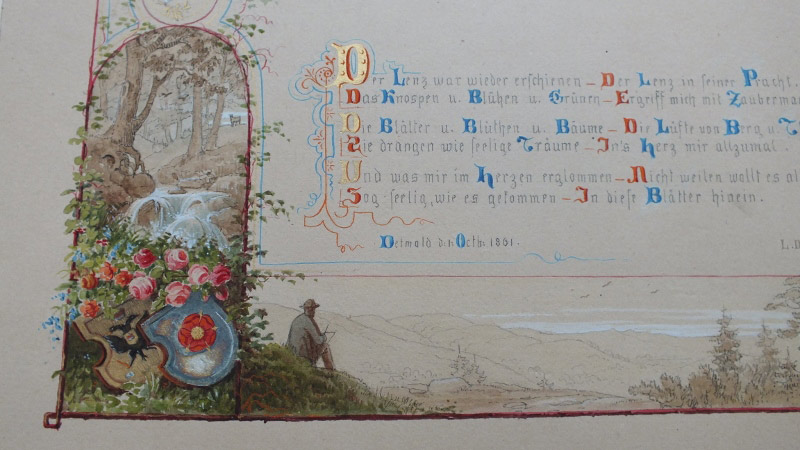 Der Lenz war wieder erschienen – Der Lenz in seiner Pracht.
Das Knospen u. Blühen u. Grünen – Ergriff mich mit
Die Blätter u. Blüthen u. Bäume – Die Lüfte von Berg u. T
Sie drängen wie seelige Träume – In's Herz mir allzumal.
Und was mir im Herzen erglommen – Nicht weilen wollt es al
Zog seelig, wie es gekommen – In diese Blätter hinein.
Detmold d. 1. Octb. 1861.